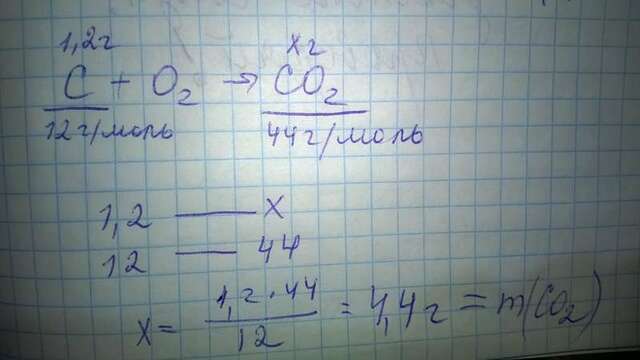 1,2г xг
C + O₂ → CO₂
12г/моль 44г/моль
1,2 — x
12 — 44
x = 1,2·44 / 12 = 4,4г = m(CO₂)